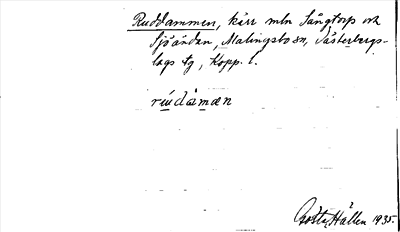 Ruddammen, kärr mln Sångtorp och
Sjöändan, Malingsbo sn, Västerbergs-
lags tg, Kopp. l.
rúdàmæn
Gösta Hallén 1935.